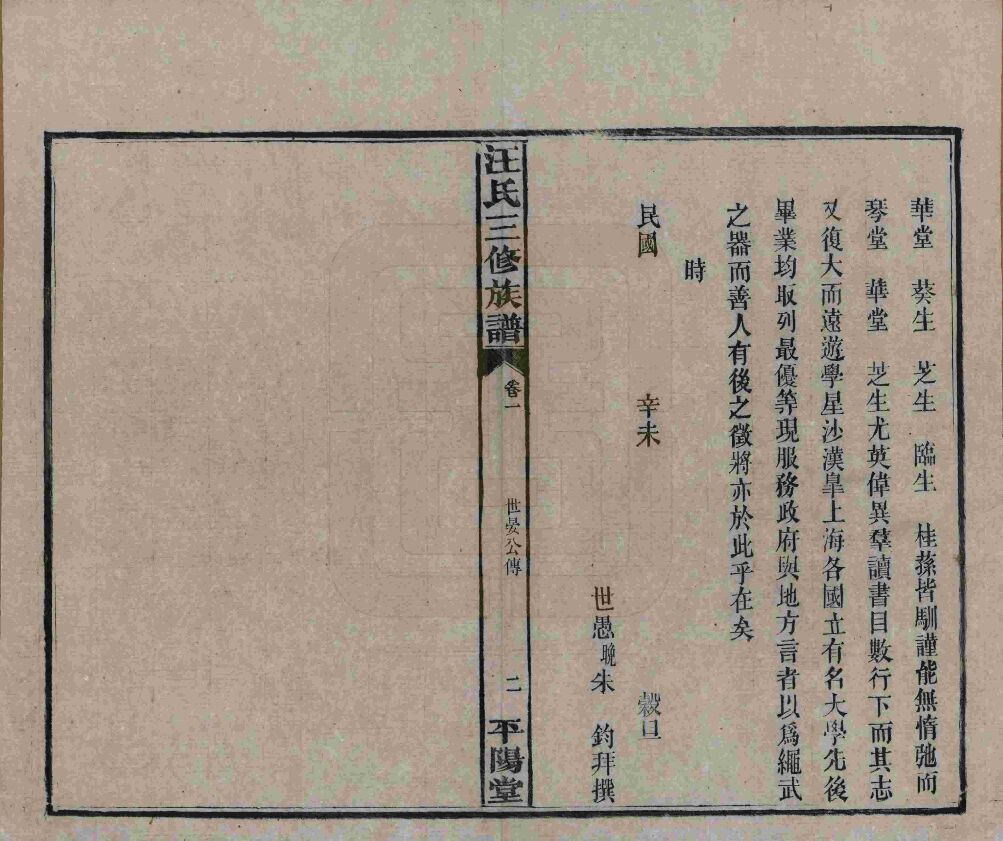 華堂 葵生 芝生 臨生 桂蓀皆馴謹能無惰弛而
琴堂 華堂 芝生尤英偉異羣讀書目數行下而其志
又復大而遠遊學星沙漢皐上海各國立有名大學先後
畢業均取列最優等現服務政府與地方言者以爲繩武
之器而善人有後之徵將亦於此乎在矣
時
民國 辛未 穀旦
世愚晚朱 鈞拜撰
汪氏三修族譜 卷一 世晏公傳 二 平陽堂